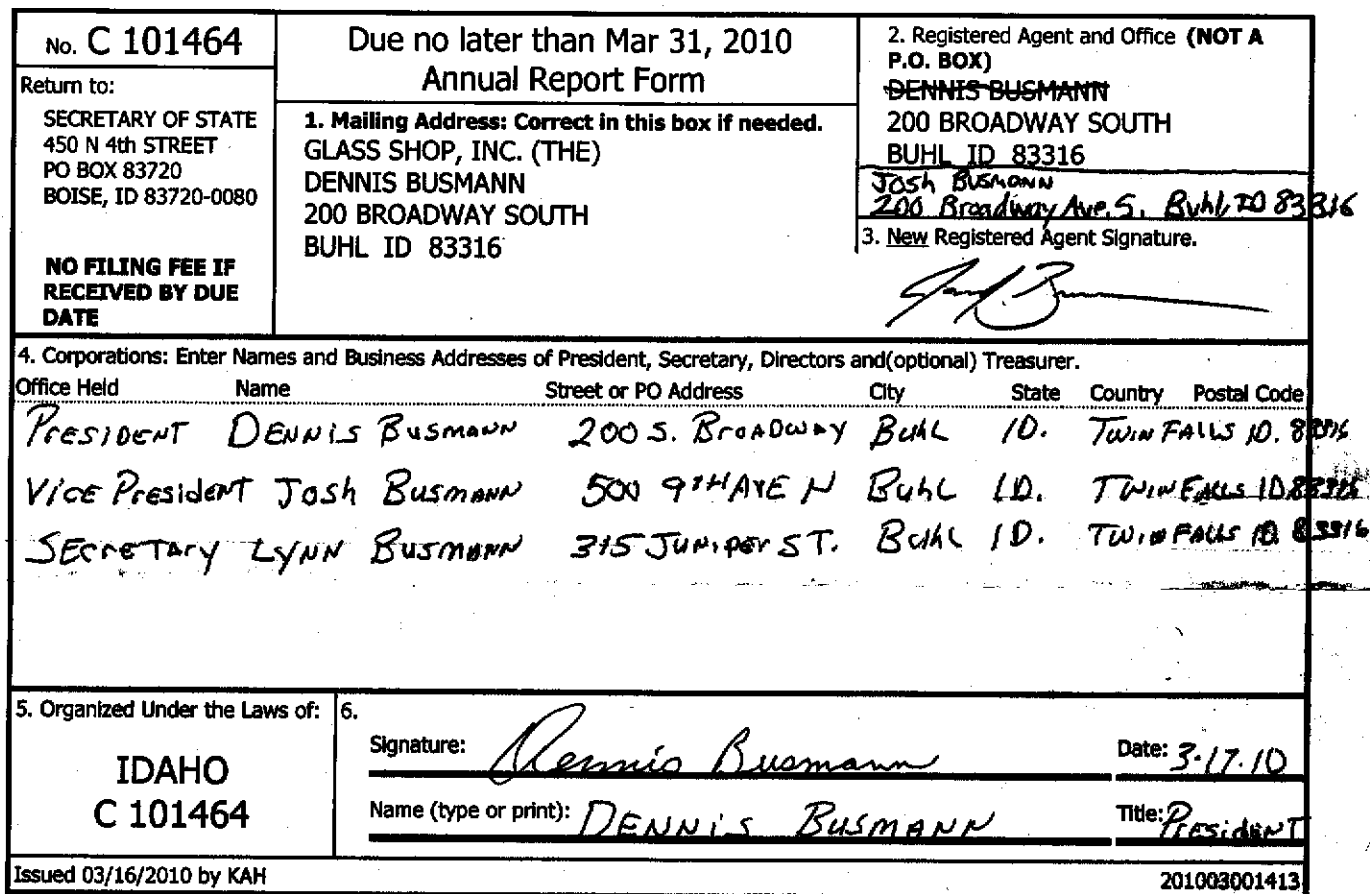 No. C 101464
Return to:
SECRETARY OF STATE
450 N 4th STREET
PO BOX 83720
BOISE, ID 83720-0080
NO FILING FEE IF
RECEIVED BY DUE
DATE
Due no later than Mar 31, 2010
Annual Report Form
1. Mailing Address: Correct in this box if needed.
GLASS SHOP, INC. (THE)
DENNIS BUSMANN
200 BROADWAY SOUTH
BUHL ID 83316
2. Registered Agent and Office (NOT A
P.O. BOX)
DENNIS BUSMANN
200 BROADWAY SOUTH
BUHL ID 83316
Josh Busmann
200 Broadway Ave. S. Buhl, ID 83316
3. New Registered Agent Signature.
4. Corporations: Enter Names and Business Addresses of President, Secretary, Directors and(optional) Treasurer.
Office Held Name Street or PO Address City State Country Postal Code
President Dennis Busmann 200 S. Broadway Buhl ID. Twin Falls ID. 83316
Vice President Josh Busmann 500 9TH AVE N Buhl ID. Twin Falls ID 83316
Secretary Lynn Busmann 315 Juniper ST. Buhl ID. Twin Falls ID 83316
5. Organized Under the Laws of:
IDAHO
C 101464
6.
Signature: Dennis Busmann Date: 3-17-10
Name (type or print): DENNIS BUSMANN Title: President
Issued 03/16/2010 by KAH 201003001413